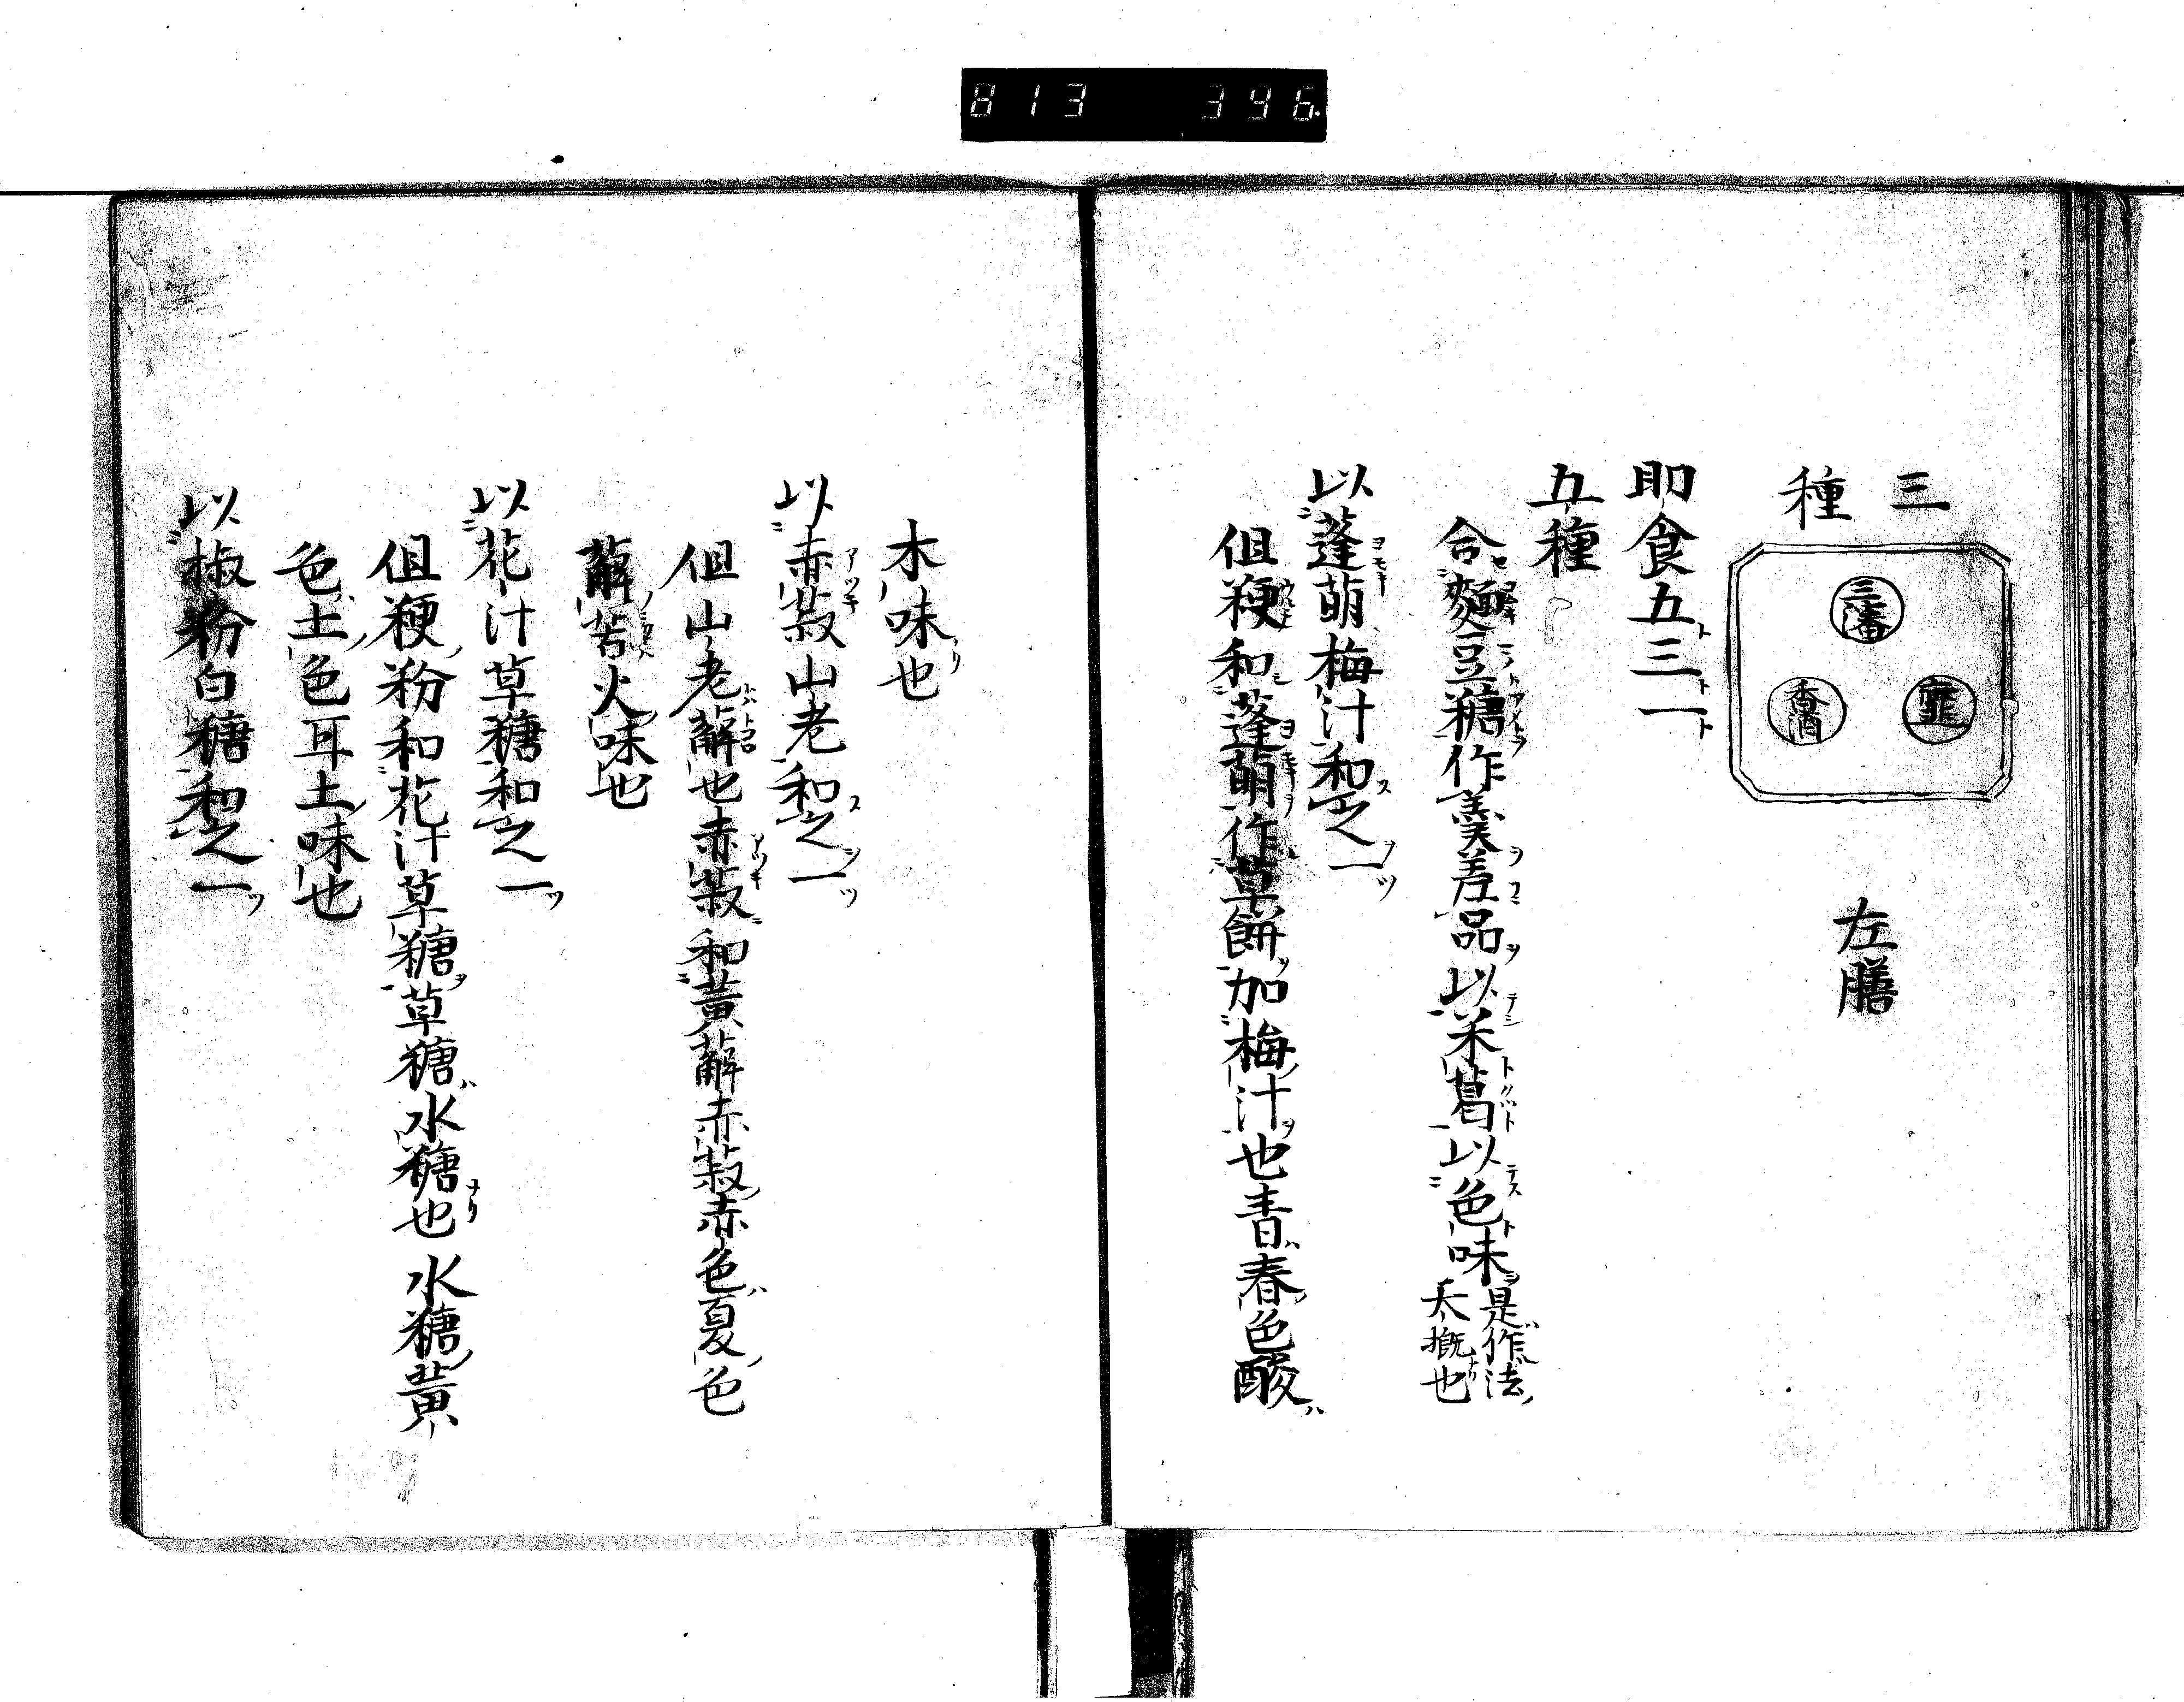 813 396
三種
三瀋
韲
香酒
左膳
即食五三一
五種
合麵豆糖作羹差品以米葛以色味是作法大概也
以蓬萌梅汁和之一
但粳和蓬萌作草餅加梅汁也青春色酸
木味也
以赤菽山老和之一
但山老薢也赤菽和黄薢赤菽赤色夏色
薢苦火味也
以花汁草糖和之一
但粳粉和花汁草糖草糖水糖也水糖黄
色土色耳土味也
以椒粉白糖和之一